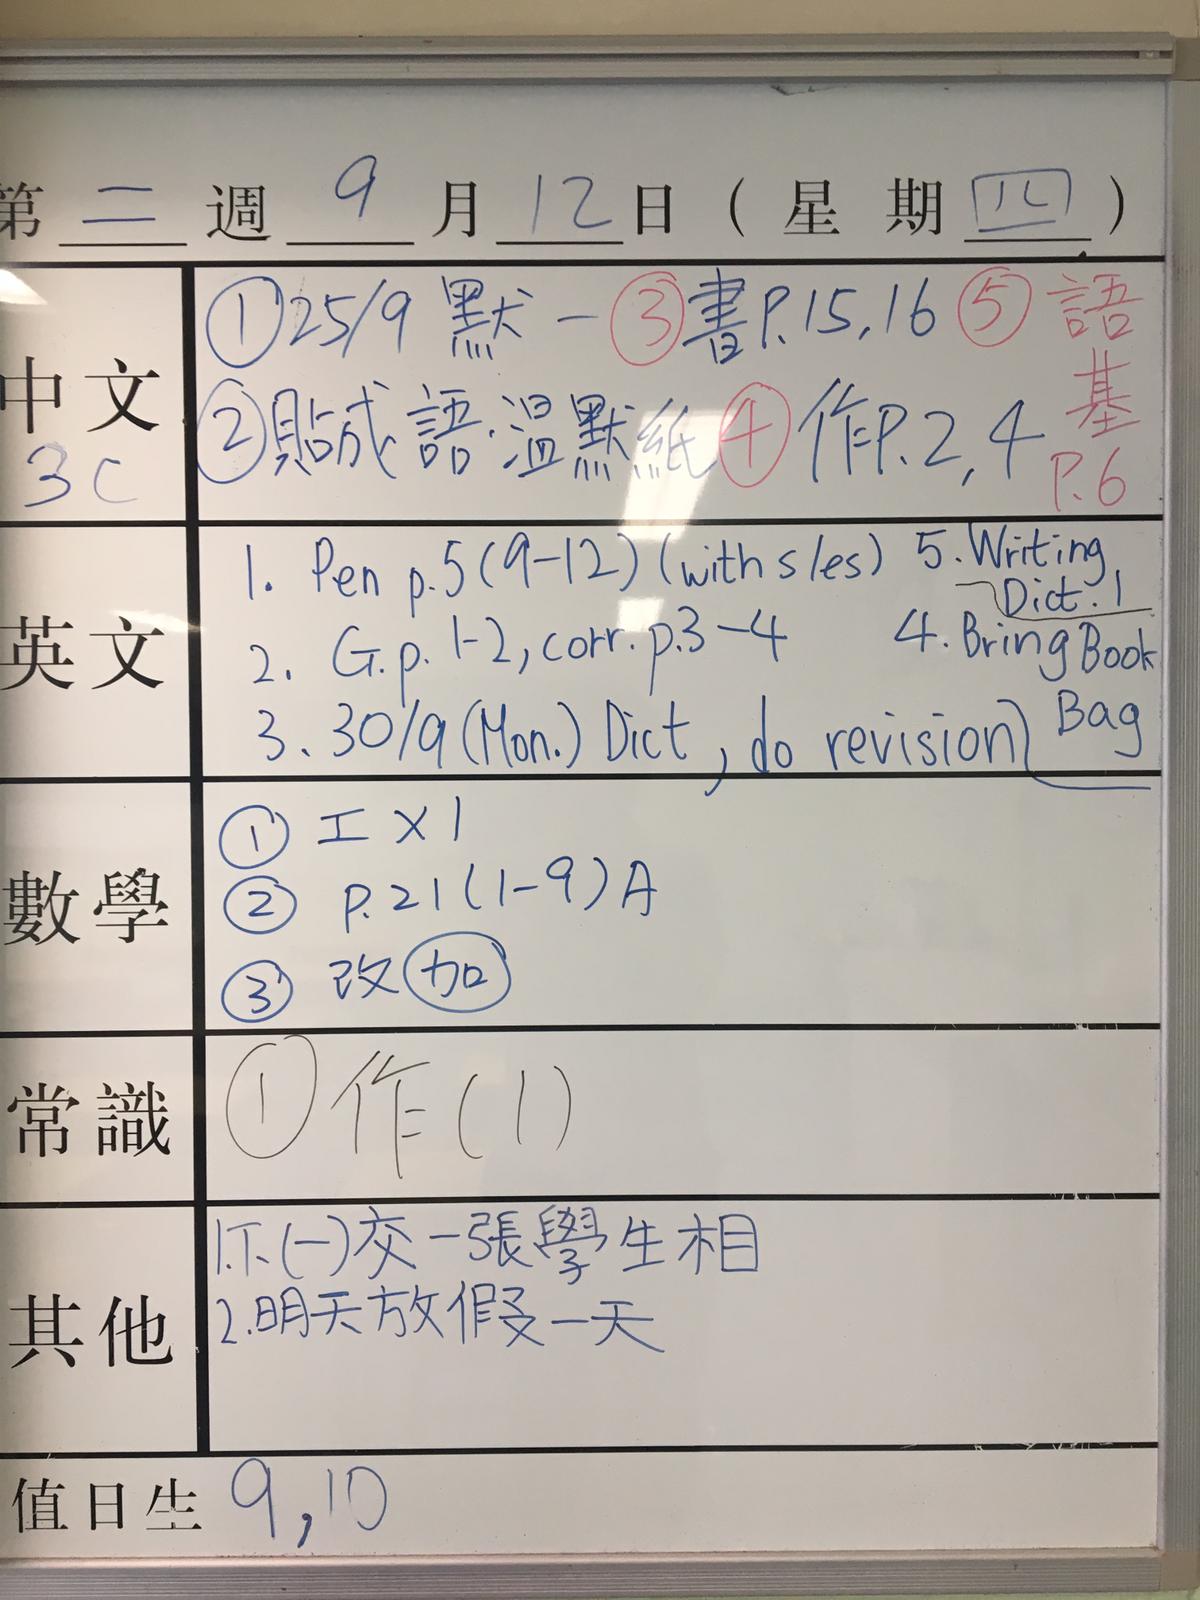 第 二 週 9 月 12 日 ( 星 期 四 )
中文
3C
① 25/9 默一 ③ 書P.15,16 ⑤ 語
基
P.6
② 貼成語.溫默紙 ④ 作P.2,4
英文
1. Pen p.5 (9-12) (with s/es) 5. Writing
Dict. 1
2. G.p. 1-2, corr. p.3-4 4. Bring Book
Bag
3. 30/9 (Mon.) Dict, do revision
數學
① 工 X 1
② P.21 (1-9) A
③ 改 加
常識
① 作(1)
其他
1.下(一)交一張學生相
2.明天放假一天
值日生 9,10